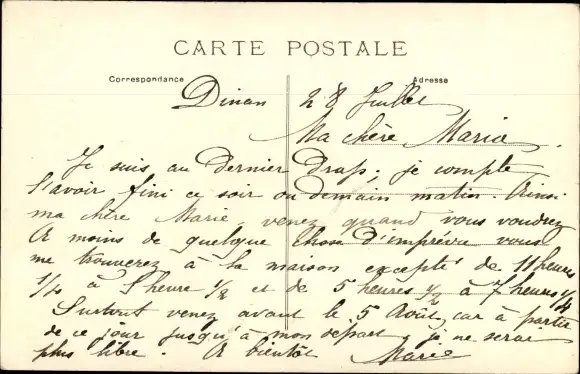 CARTE POSTALE
Correspondance
Adresse
Dinan 28 Juillet
Ma chère Marie
Je suis au Dernier Drap; je compte
l'avoir fini ce soir ou demain matin. Ainsi
ma chère Marie, venez quand vous voudrez
A moins de quelque chose d'imprévu vous
me trouverez à la maison excepté de 11 heures
1/4 à 1 heure 1/2 et de 5 heures 1/2 à 7 heures 1/4
Surtout venez avant le 5 Août, car à partir
de ce jour jusqu'à mon depart, je ne serai
plus libre. A bientôt Marie